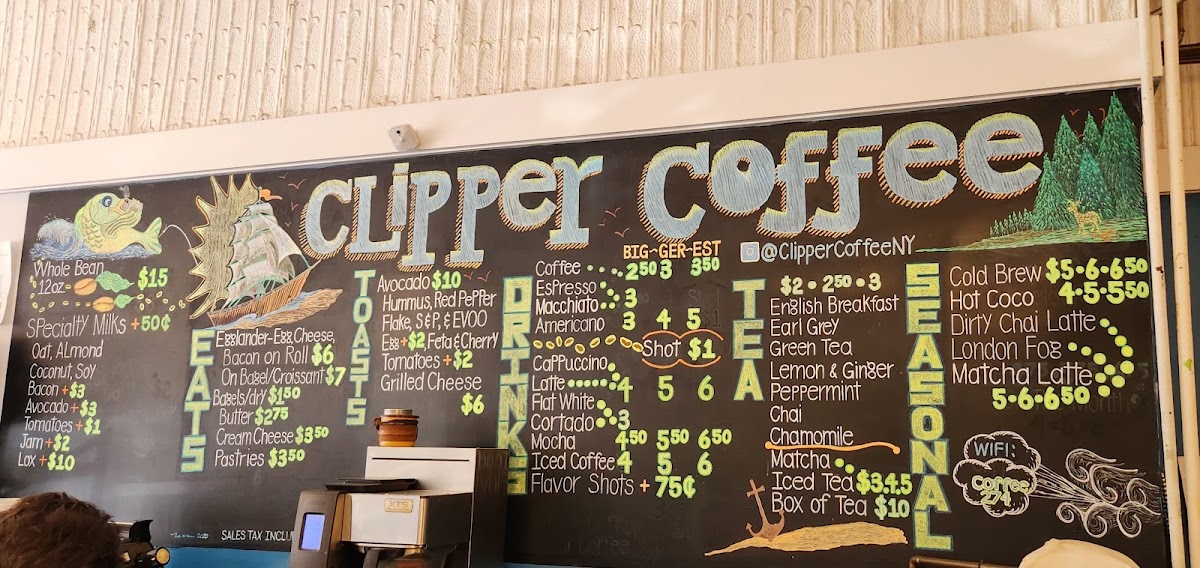 CLipper Coffee
@ClipperCoffeeNY
Whole Bean
12oz $15
Specialty Milks +50¢
Oat, Almond
Coconut, Soy
Bacon +$3
Avocado +$3
Tomatoes +$1
Jam +$2
Lox +$10
EATS
Egglander-Egg, Cheese,
Bacon on Roll $6
On Bagel/Croissant $7
Bagels/dry $150
Butter $275
Cream Cheese $350
Pastries $350
SALES TAX INCLU
TOASTS
Avocado $10
Hummus, Red Pepper
Flake, S&P, & EVOO
Egg +$2, Feta & Cherry
Tomatoes +$2
Grilled Cheese
$6
DRINKS
BIG~GER~EST
Coffee 250 3 350
Espresso
Macchiato 3
Americano 3 4 5
Shot $1
Cappuccino
Latte 4 5 6
Flat White
Cortado 3
Mocha 450 550 650
Iced Coffee 4 5 6
Flavor Shots + 75¢
TEA
$2 • 250 • 3
English Breakfast
Earl Grey
Green Tea
Lemon & Ginger
Peppermint
Chai
Chamomile
Matcha
Iced Tea $3.4.5
Box of Tea $10
SEASONAL
Cold Brew $5-6-650
Hot Coco 4-5-550
Dirty Chai Latte
London Fog
Matcha Latte
5-6-650
WIFI:
Coffee
274